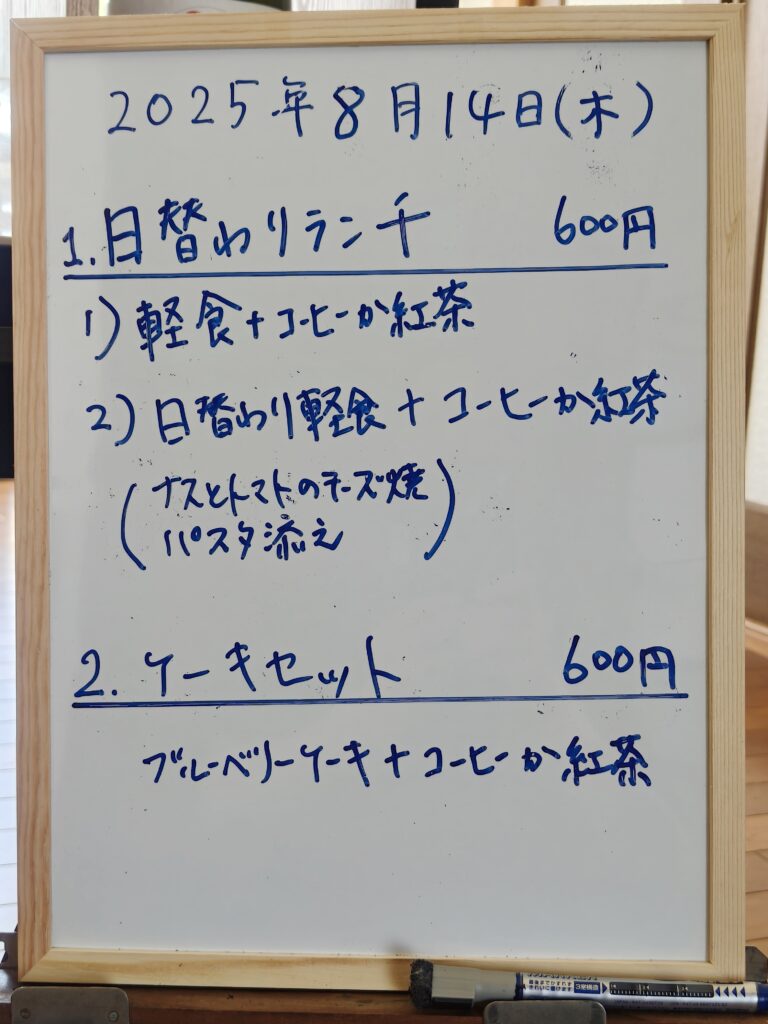 2025年8月14日(木)
1.日替わりランチ 600円
1)軽食+コーヒーか紅茶
2)日替わり軽食+コーヒーか紅茶
(ナスとトマトのチーズ焼
パスタ添え)
2.ケーキセット 600円
ブルーベリーケーキ+コーヒーか紅茶
3室構造